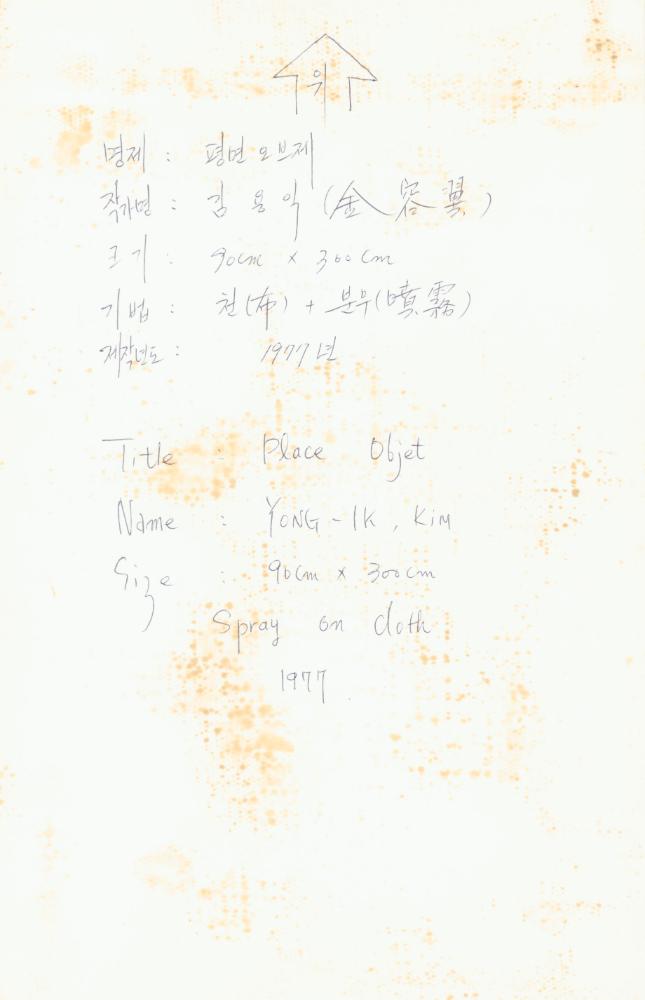 위
명제 : 평면오브제
작가명 : 김용익 (金容翼)
크기 : 90cm × 300cm
기법 : 천(布) + 분무(噴霧)
제작년도 : 1977년
Title : Place Objet
Name : YONG-IK, KIM
Size : 90cm × 300cm
Spray on cloth
1977